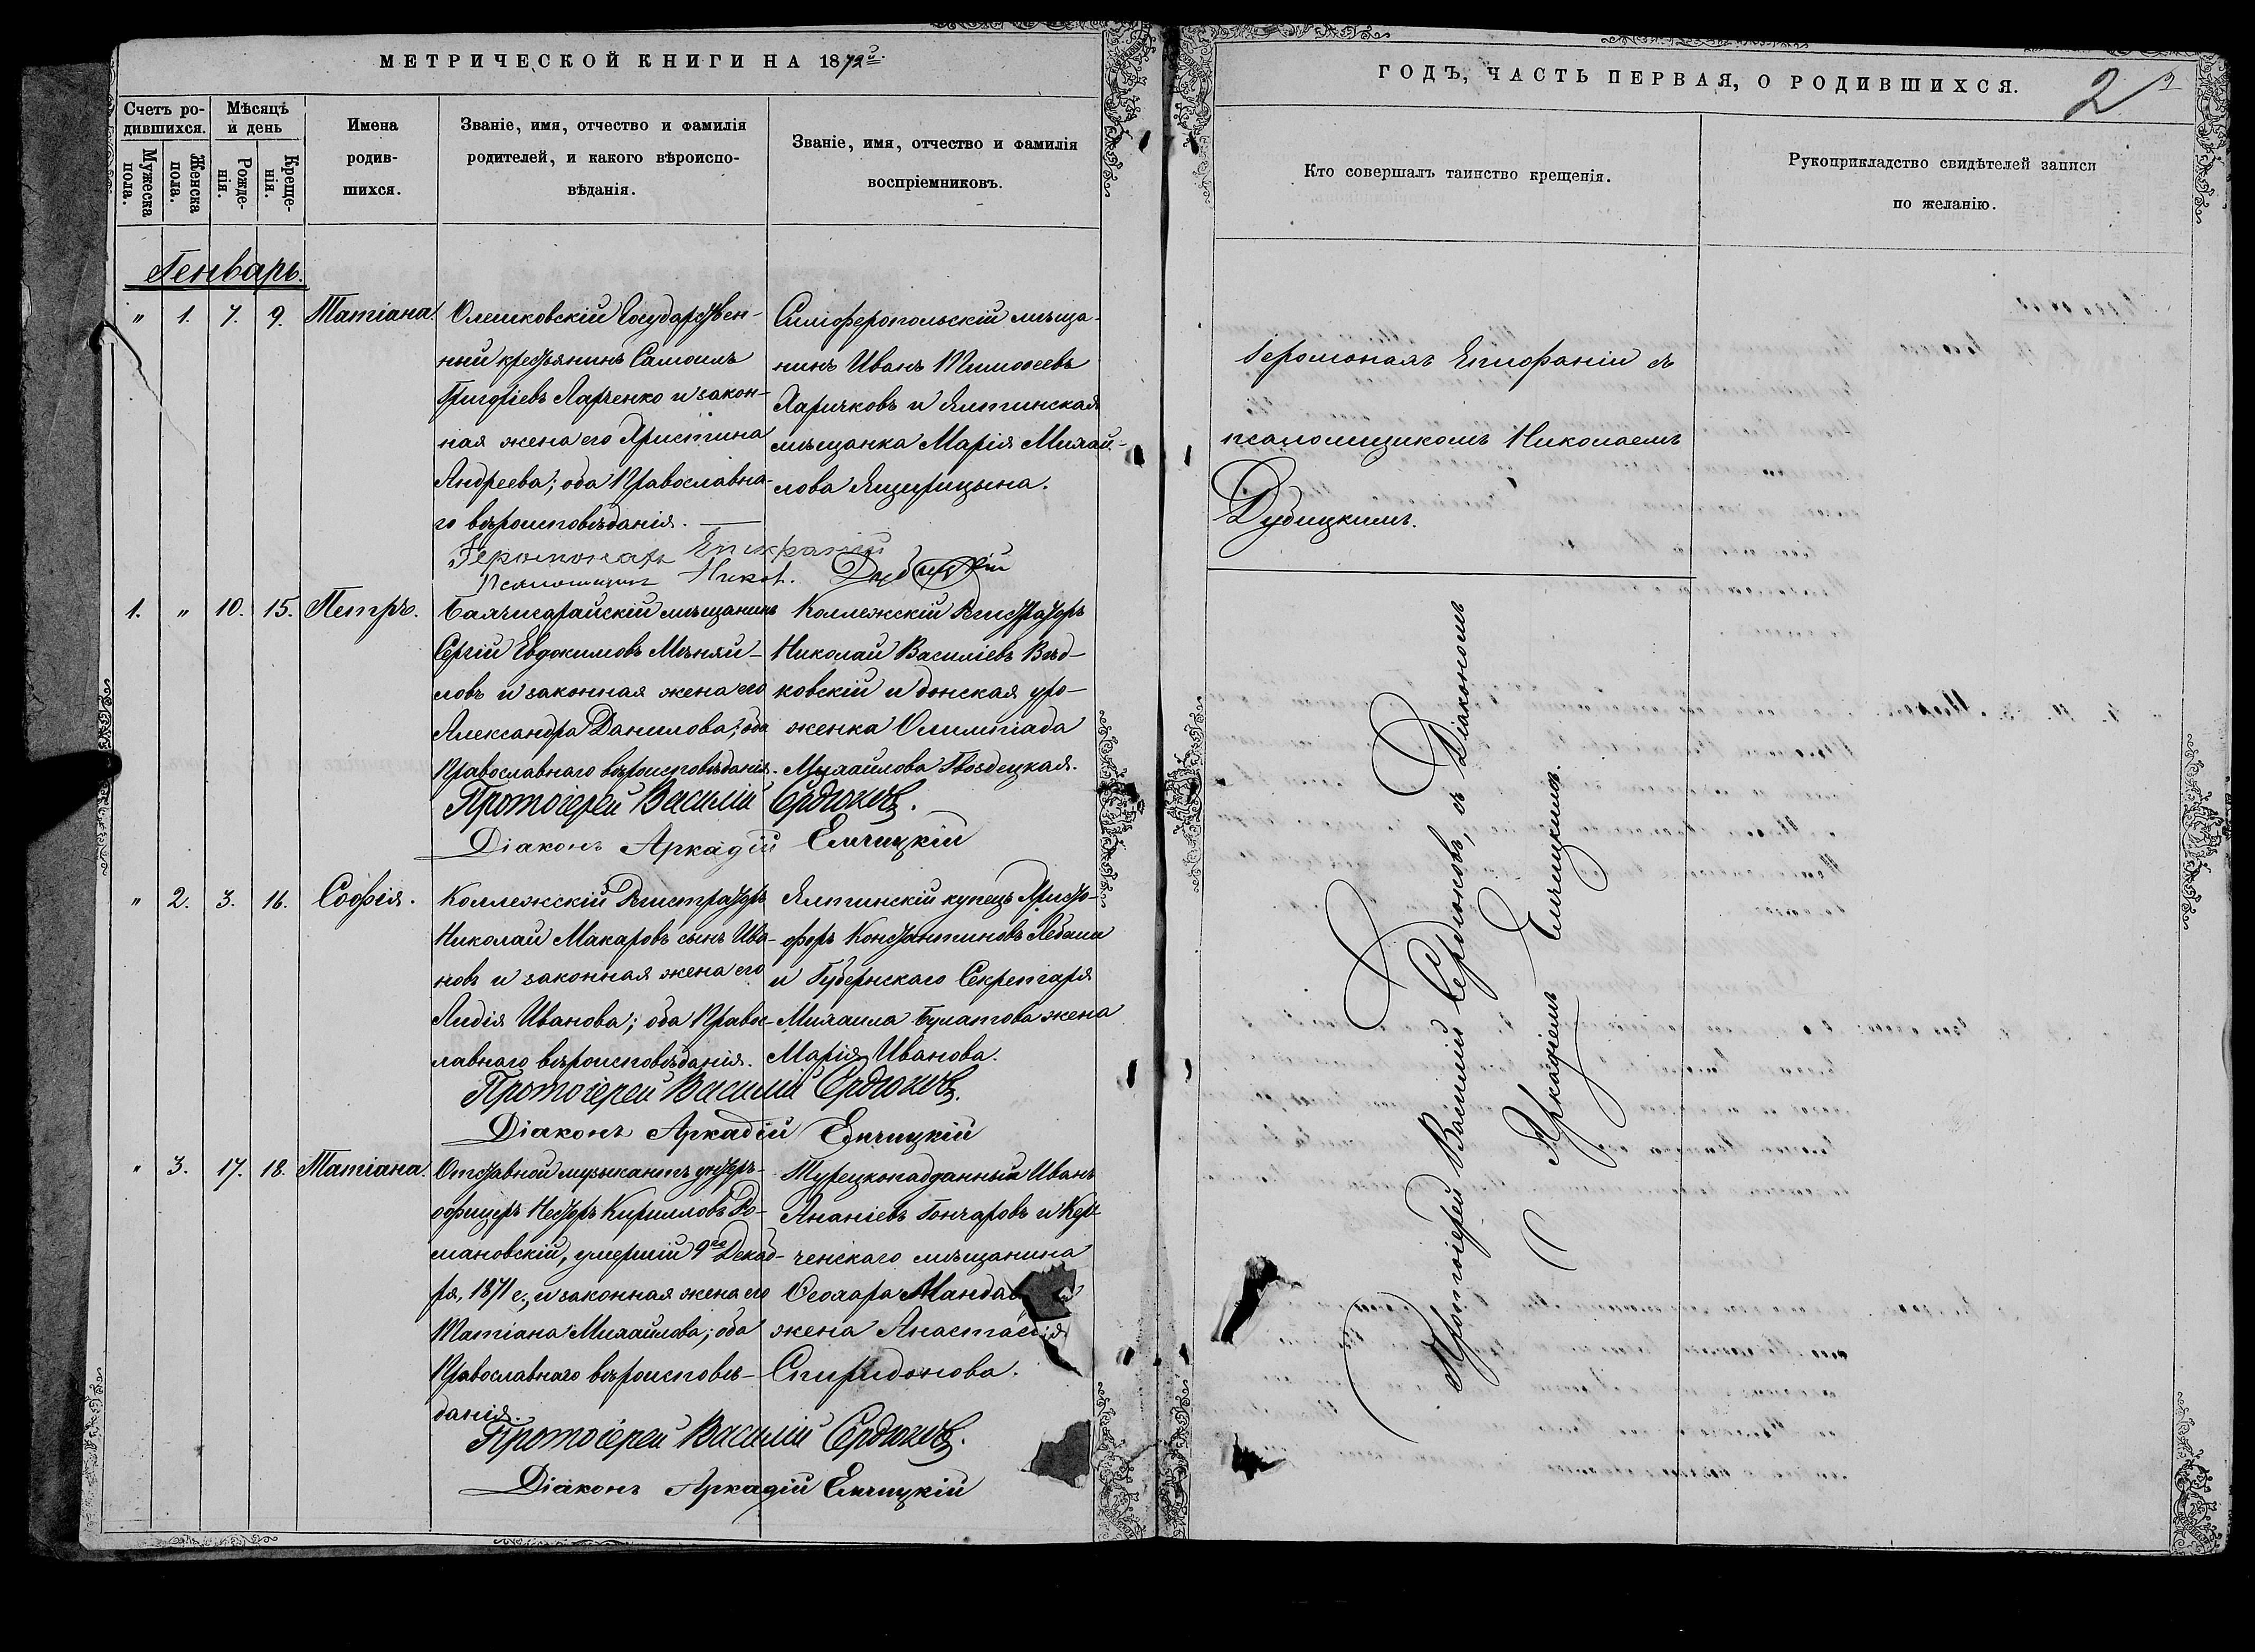 МЕТРИЧЕСКОЙ КНИГИ НА 1872й
Счетъ ро-
дившихся.
Мужеска
пола.
Женска
пола.
Мѣсяцъ
и день
Рожде-
нія.
Креще-
нія.
Имена
родив-
шихся.
Званіе, имя, отчество и фамилія
родителей, и какого вѣроиспо-
вѣданія.
Званіе, имя, отчество и фамилія
воспріемниковъ.
Генварь.
" 1. 7. 9. Татіана.
Олешковскій Государствен-
ный крестьянинъ Самоилъ
Григоріевъ Харченко и закон-
ная жена его Христина
Андреева; оба Православна-
го вѣроисповѣданія.
Симферопольскій мѣща-
нинъ Иванъ Тимоѳеевъ
Харичковъ и Ялтинская
мѣщанка Марія Михай-
лова Ящирицына.
Іеромонахъ Епифаній
Псаломщикъ Никол. Дубицкій
1. " 10. 15. Петръ.
Бахчисарайскій мѣщанинъ
Сергій Евдокимовъ Мѣняй-
ловъ и законная жена его
Александра Данилова; оба
Православнаго вѣроисповѣданія.
Коллежскій Регистраторъ
Николай Василіевъ Вѣд-
ковскій и донская уро-
женка Олимпіада
Михайлова Гвоздецкая.
Протоіерей Василій Сердюковъ.
Діаконъ Аркадій Емчицкій
" 2. 3. 16. Софія.
Коллежскій Регистраторъ
Николай Макаровъ сынъ Ива-
новъ и законная жена его
Лидія Иванова; оба Правос-
лавнаго вѣроисповѣданія.
Ялтинскій купецъ Христо-
форъ Константиновъ
и Губернскаго Секретаря
Михаила Булатова жена
Марія Иванова.
Протоіерей Василій Сердюковъ.
Діаконъ Аркадій Емчицкій
" 3. 17. 18. Татіана.
Отставной музыкантъ унтеръ-
офицеръ Несторъ Кирилловъ Ро-
мановскій, умершій 9го Декаб-
ря, 1871 г., и законная жена его
Татіана Михайлова; оба
Православнаго вѣроисповѣ-
данія.
Турецкоподданный Иванъ
Ананіевъ Гончаровъ и Кер-
ченскаго мѣщанина
жена Анастасія
Спиридонова.
Протоіерей Василій Сердюковъ.
Діаконъ Аркадій Емчицкій
ГОДЪ, ЧАСТЬ ПЕРВАЯ, О РОДИВШИХСЯ.
2
Кто совершалъ таинство крещенія.
Рукоприкладство свидѣтелей записи
по желанію.
Іеромонахъ Епифаній съ
псаломщикомъ Николаемъ
Дубицкимъ.
Протоіерей Василій Сердюковъ, съ Діакономъ
Аркадіемъ Емчицкимъ.